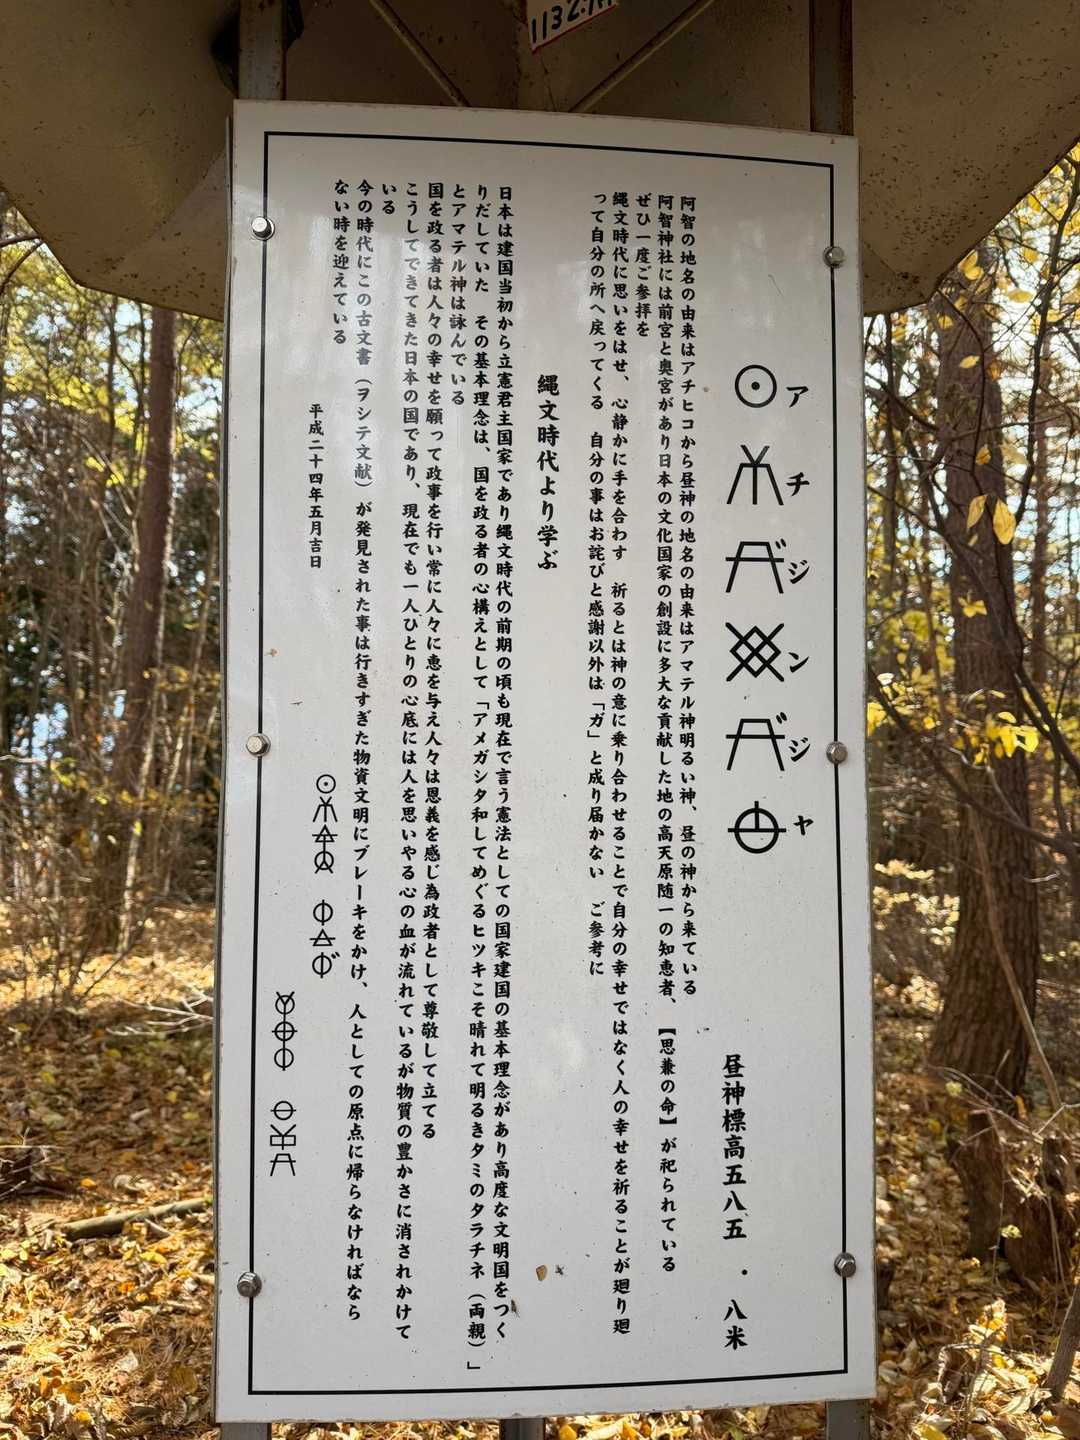 1132.7m
アチジンジヤ
昼神標高五八五・八米
阿智の地名の由来はアチヒコから昼神の地名の由来はアマテル神明るい神、昼の神から来ている
阿智神社には前宮と奥宮があり日本の文化国家の創設に多大な貢献した地の高天原随一の知恵者、【思兼の命】が祀られている
ぜひ一度ご参拝を
縄文時代に思いをはせ、心静かに手を合わす　祈るとは神の意に乗り合わせることで自分の幸せではなく人の幸せを祈ることが廻り廻
って自分の所へ戻ってくる　自分の事はお詫びと感謝以外は「ガ」と成り届かない　ご参考に
縄文時代より学ぶ
日本は建国当初から立憲君主国家であり縄文時代の前期の頃も現在で言う憲法としての国家建国の基本理念があり高度な文明国をつく
りだしていた　その基本理念は、国を政る者の心構えとして「アメガシタ和してめぐるヒツキこそ晴れて明るきタミのタラチネ（両親）」
とアマテル神は詠んでいる
国を政る者は人々の幸せを願って政事を行い常に人々に恵を与え人々は恩義を感じ為政者として尊敬して立てる
こうしてできてきた日本の国であり、現在でも一人ひとりの心底には人を思いやる心の血が流れているが物質の豊かさに消されかけて
いる
今の時代にこの古文書（ヲシテ文献）が発見された事は行きすぎた物資文明にブレーキをかけ、人としての原点に帰らなければなら
ない時を迎えている
平成二十四年五月吉日